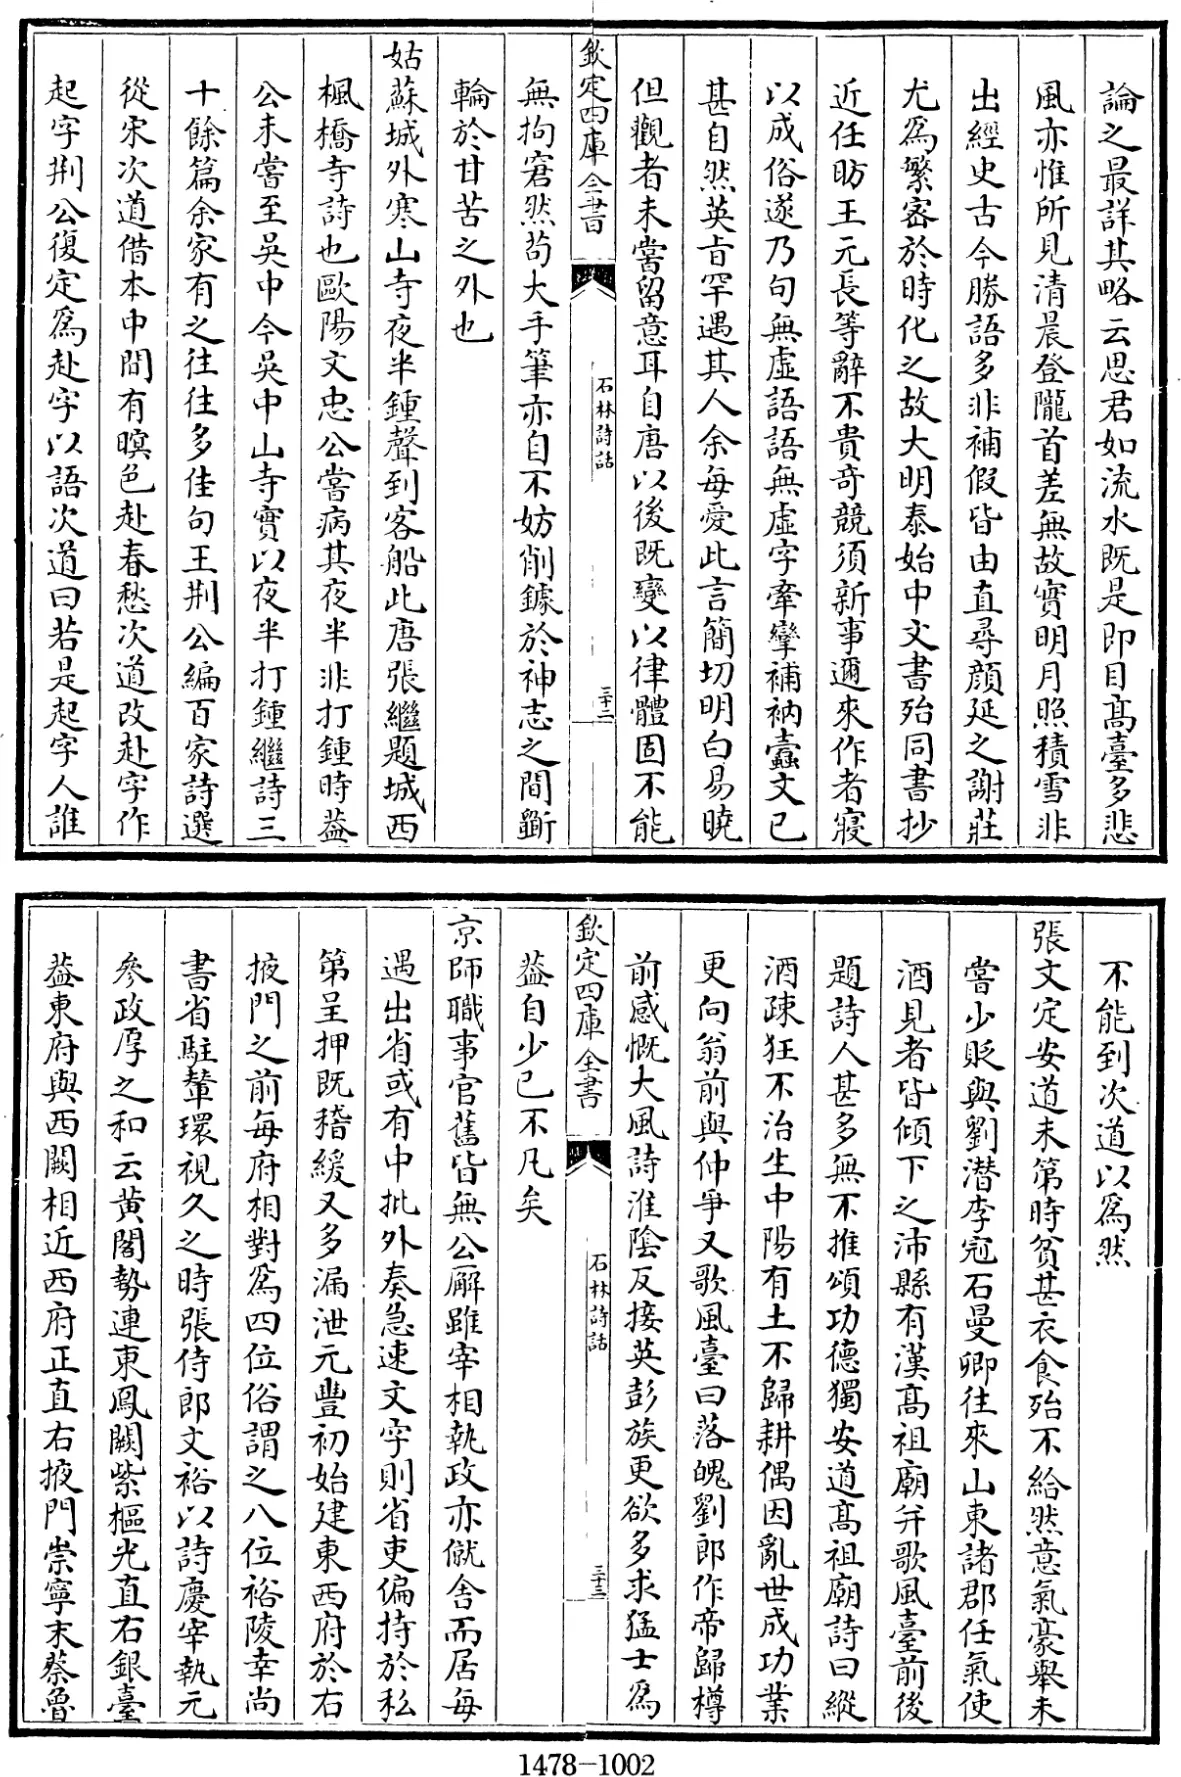 論之最詳其略云思君如流水既是即目高臺多悲
風亦惟所見清晨登隴首差無故實明月照積雪非
出經史古今勝語多非補假皆由直尋顔延之謝莊
尤爲繁密於時化之故大明泰始中文書殆同書抄
近任昉王元長等辭不貴奇競須新事邇來作者寢
以成俗遂乃句無虛語語無虛字牽攣補衲蠧文已
甚自然英旨罕遇其人余每愛此言簡切明白易曉
但觀者未嘗留意耳自唐以後既變以律體固不能
欽定四庫全書
石林詩話
三十二
無拘窘然苟大手筆亦自不妨削鐻於神志之間斵
輪於甘苦之外也
姑蘇城外寒山寺夜半鍾聲到客船此唐張繼題城西
楓橋寺詩也歐陽文忠公嘗病其夜半非打鍾時葢
公未嘗至吳中今吳中山寺實以夜半打鍾繼詩三
十餘篇余家有之往往多佳句王荆公編百家詩選
從宋次道借本中間有暝色赴春愁次道改赴字作
起字荆公復定爲赴字以語次道曰若是起字人誰
不能到次道以爲然
張文定安道未第時貧甚衣食殆不給然意氣豪舉未
嘗少貶與劉潛李冠石曼卿往來山東諸郡任氣使
酒見者皆傾下之沛縣有漢高祖廟并歌風臺前後
題詩人甚多無不推頌功德獨安道高祖廟詩曰縱
酒疎狂不治生中陽有土不歸耕偶因亂世成功業
更向翁前與仲爭又歌風臺曰落魄劉郎作帝歸樽
前感慨大風詩淮陰反接英彭族更欲多求猛士爲
欽定四庫全書
石林詩話
三十三
葢自少已不凡矣
京師職事官舊皆無公廨雖宰相執政亦僦舍而居每
遇出省或有中批外奏急速文字則省吏偏持於私
第呈押既稽緩又多漏泄元豐初始建東西府於右
掖門之前每府相對爲四位俗謂之八位裕陵幸尚
書省駐輦環視久之時張侍郎文裕以詩慶宰執元
參政厚之和云黄閣勢連東鳳闕紫樞光直右銀臺
葢東府與西闕相近西府正直右掖門崇寧末蔡魯
1478-1002